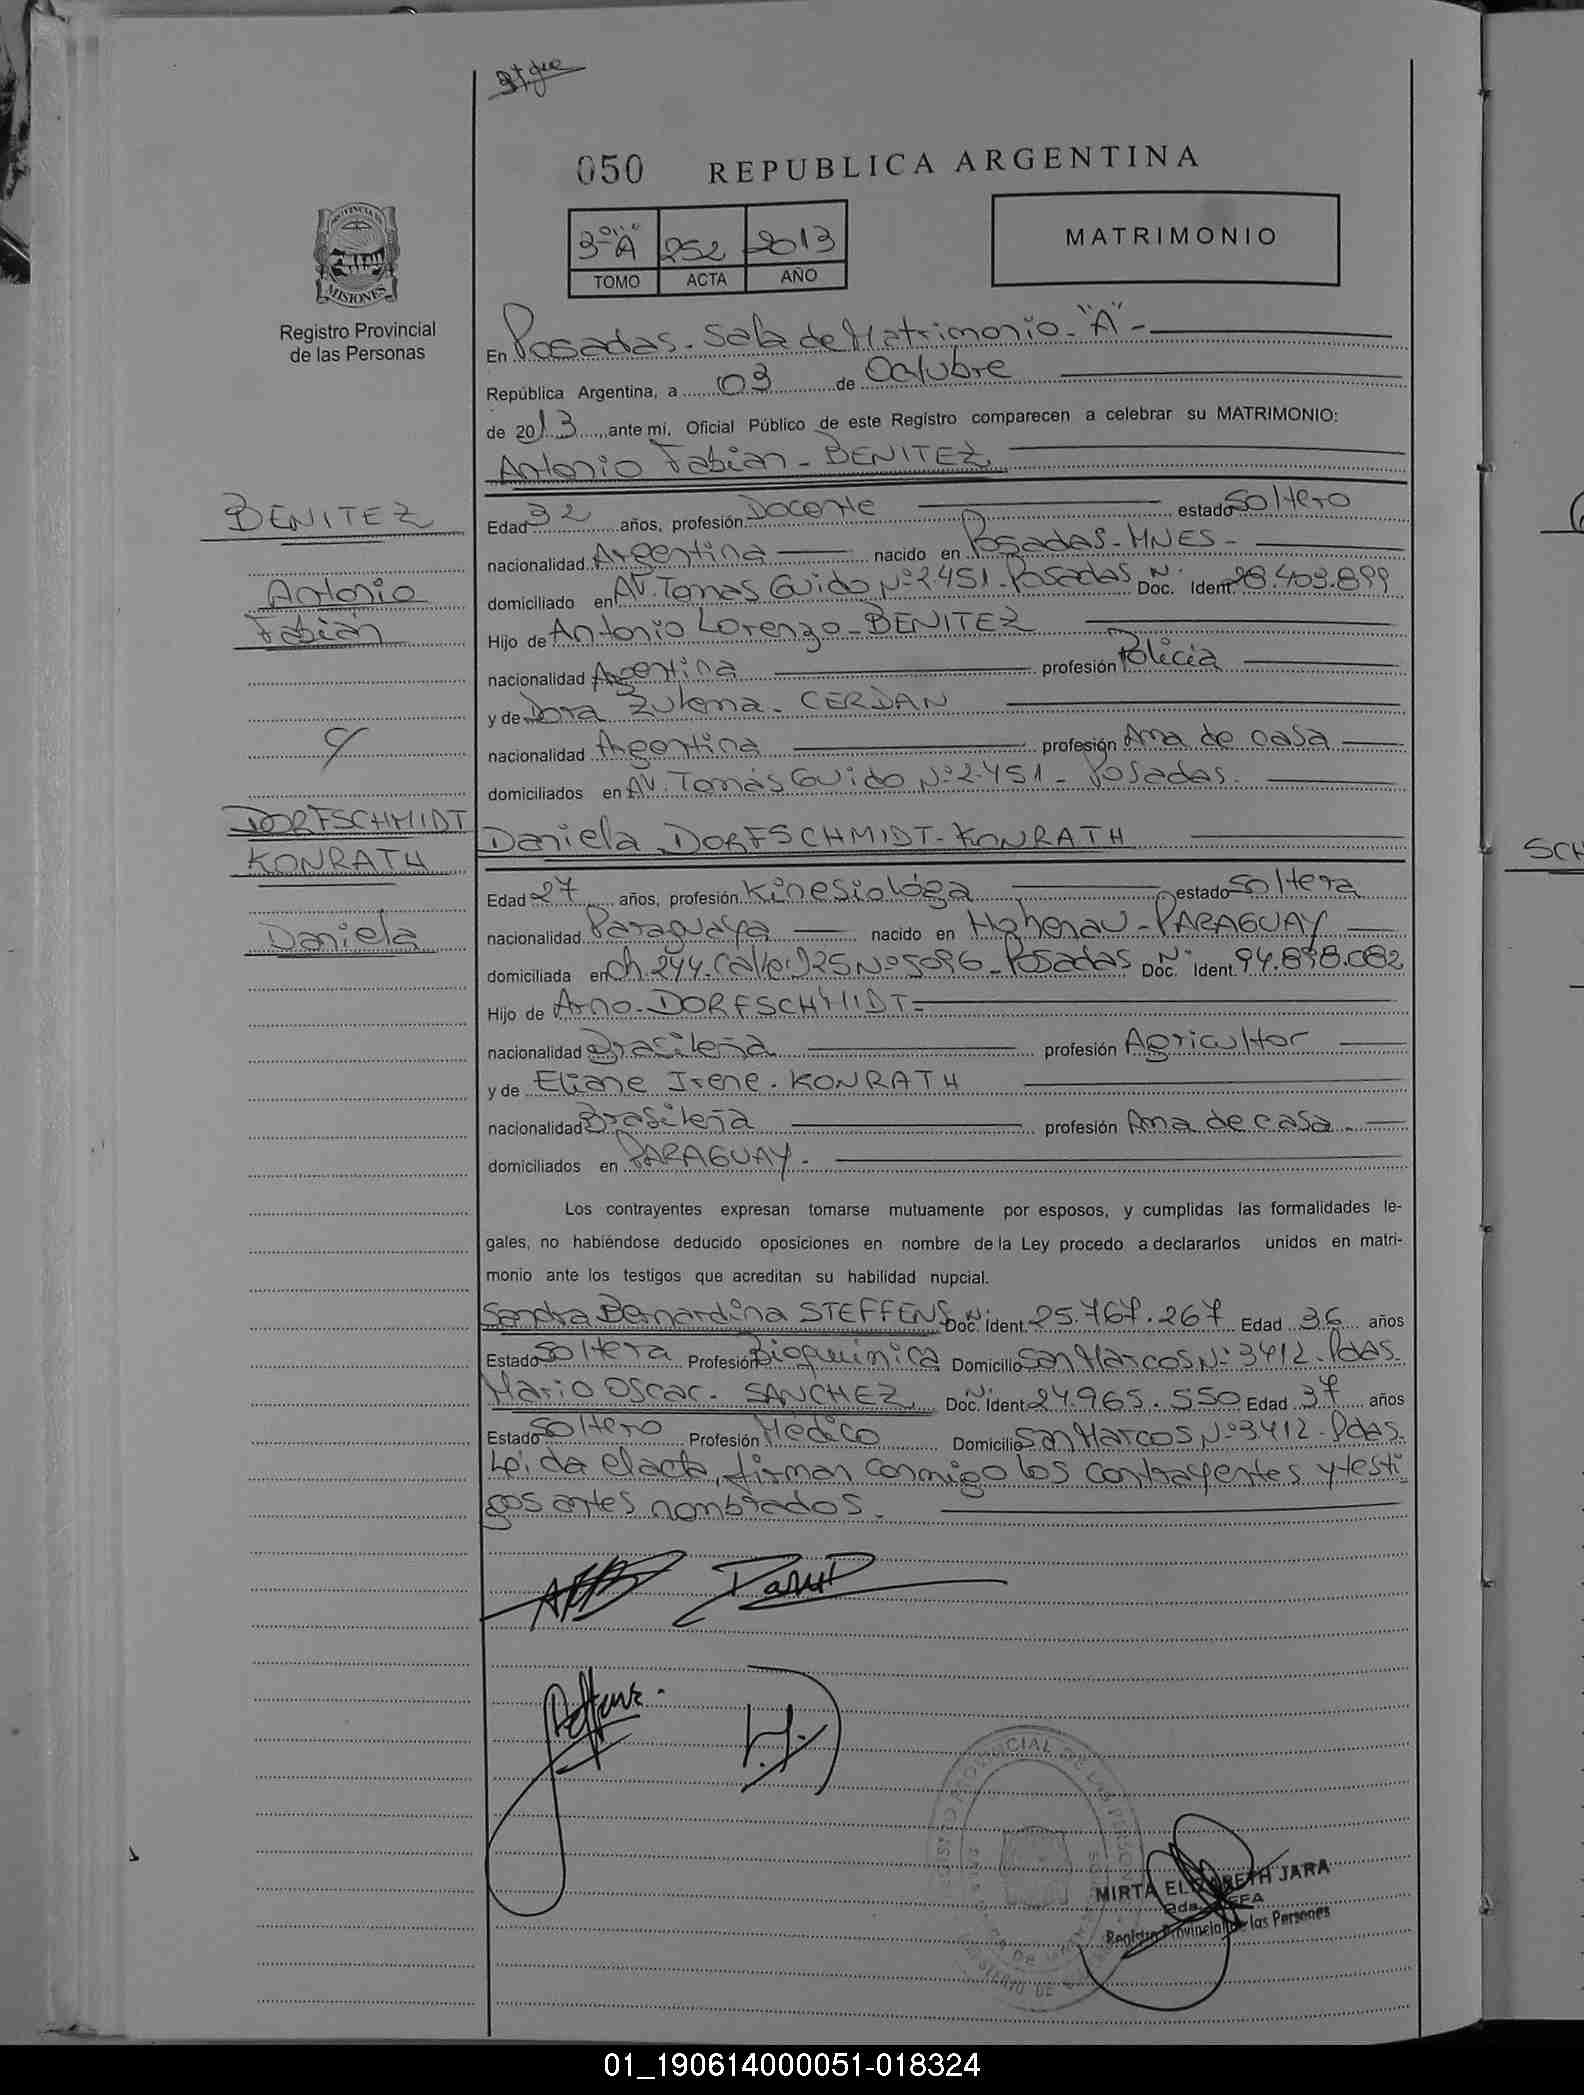 050 REPUBLICA ARGENTINA
PROVINCIA DE
MISIONES
Registro Provincial
de las Personas
3º "A" 252 2013
TOMO ACTA AÑO
MATRIMONIO
En Posadas - Sala de Matrimonio - "A" -
República Argentina, a 03 de Octubre
de 2013 ante mí, Oficial Público de este Registro comparecen a celebrar su MATRIMONIO:
Antonio Fabian - BENITEZ
BENITEZ
Antonio
Fabián
Edad 32 años, profesión Docente estado Soltero
nacionalidad Argentina nacido en Posadas - MNES -
domiciliado en AV. Tomas Guido Nº 2451 - Posadas Doc. N. Ident. 28.403.899
Hijo de Antonio Lorenzo - BENITEZ
nacionalidad Argentina profesión Policia
y de Dora Zulema - CERDAN
nacionalidad Argentina profesión Ama de casa
domiciliados en AV. Tomás Guido Nº 2451 - Posadas.
c/
DORFSCHMIDT
KONRATH
Daniela
Daniela DORFSCHMIDT - KONRATH
Edad 27 años, profesión Kinesióloga estado Soltera
nacionalidad Paraguaya nacido en Hohenau - PARAGUAY
domiciliada en Ch. 244 - Calle: 125 Nº 5096 - Posadas Doc. N. Ident. 94.898.082
Hijo de Arno - DORFSCHMIDT
nacionalidad Brasileña profesión Agricultor
y de Eliane Irene - KONRATH
nacionalidad Brasileña profesión Ama de casa -
domiciliados en PARAGUAY -
Los contrayentes expresan tomarse mutuamente por esposos, y cumplidas las formalidades le-
gales, no habiéndose deducido oposiciones en nombre de la Ley procedo a declararlos unidos en matri-
monio ante los testigos que acreditan su habilidad nupcial.
Sandra Bernardina STEFFENS Doc. N. Ident. 25.767.267 Edad 36 años
Estado Soltera Profesión Bioquimica Domicilio San Marcos Nº 3412 - Pdas.
Mario Oscar - SANCHEZ Doc. N. Ident. 24.965.550 Edad 37 años
Estado Soltero Profesión Médico Domicilio San Marcos Nº 3412 - Pdas.
Leida el acta, firman conmigo los contrayentes y testi-
gos antes nombrados.
MIRTA ELIZABETH JARA
2da. JEFA
Registro Provincial de las Personas
01_190614000051-018324